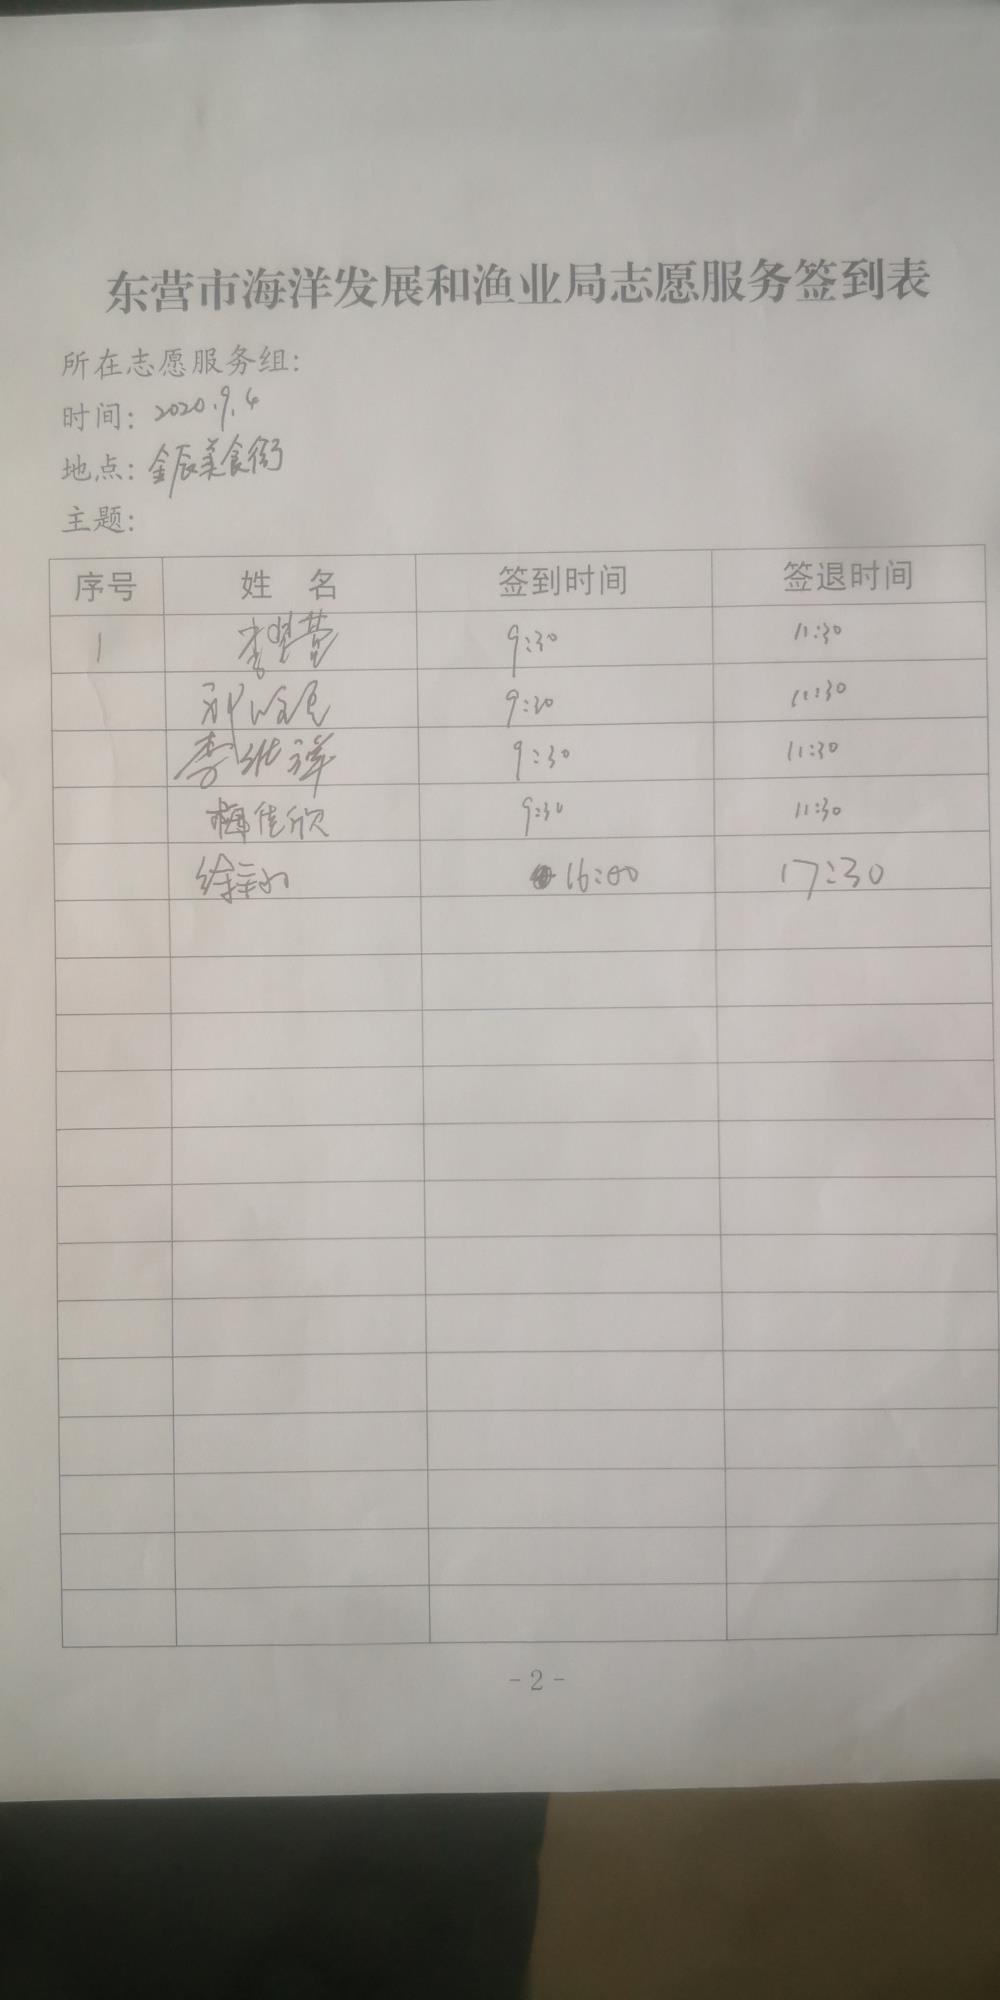 东营市海洋发展和渔业局志愿服务签到表
所在志愿服务组:
时间: 2020.9.4
地点: 金辰美食街
主题:
序号 姓 名 签到时间 签退时间
1 9:30 11:30
9:30 11:30
李继祥 9:30 11:30
梅佳欣 9:30 11:30
16:00 17:30
-2-